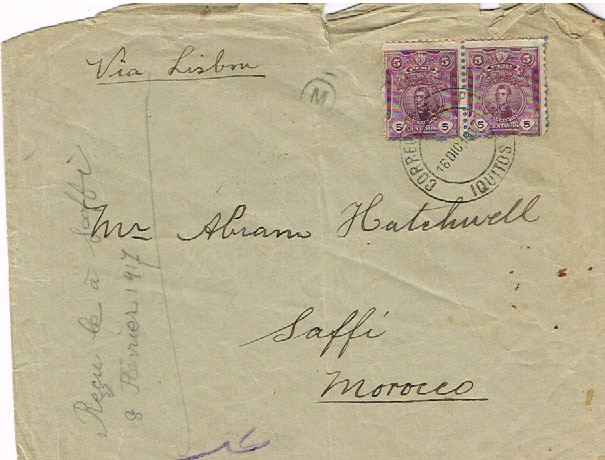 Via Lisbon
M
5 5
5 CENTAVOS 5
5 5
5 CENTAVOS 5
CORREO
16 DIC
IQUITOS
Mr Abram Hatchwell
Saffi
Morocco
Reçu le à Saffi
8 Février 1917